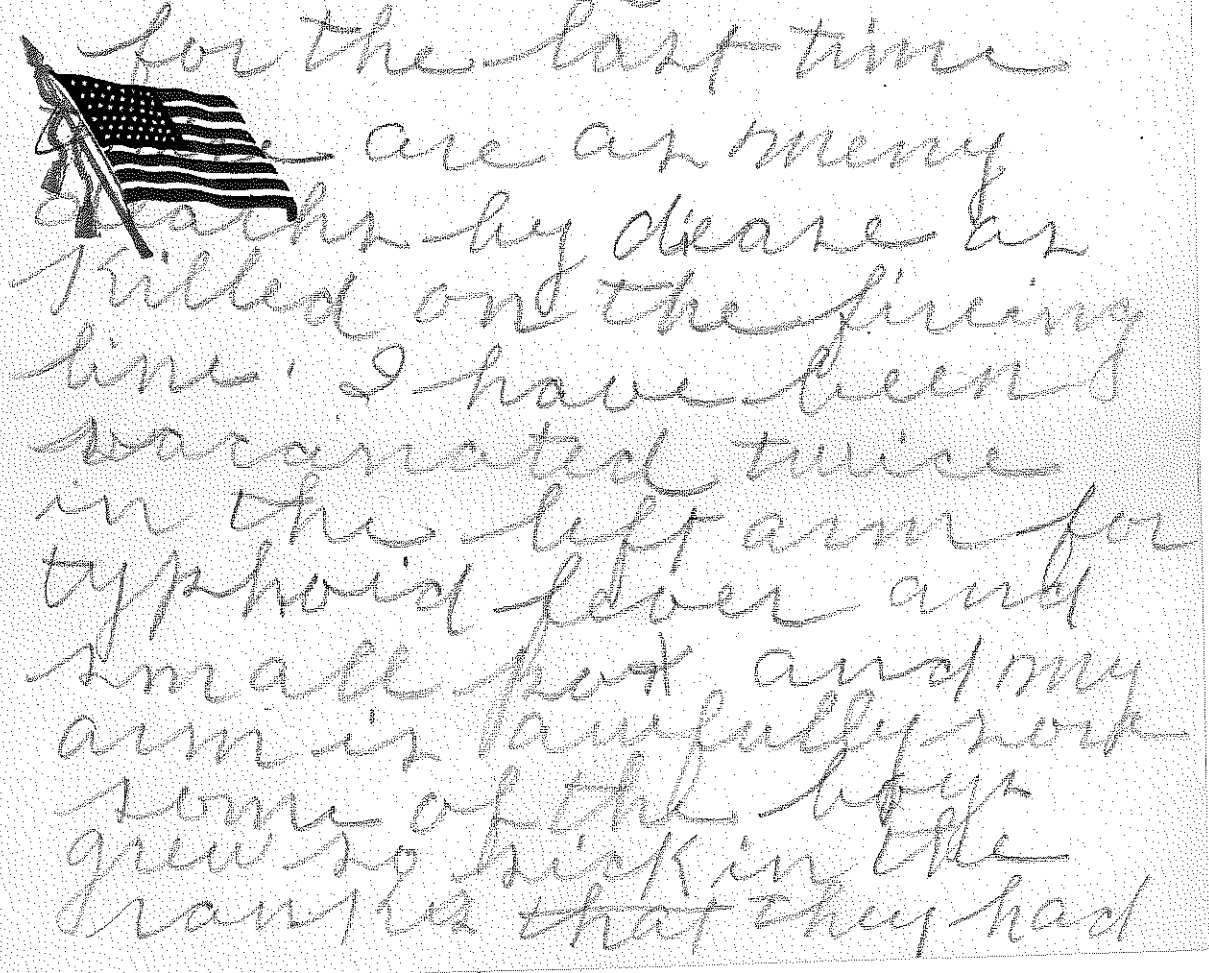 for the last time
are as meny
deaths by diease as
killed on the fireing
line. I have been
vacanated twice
in the left arm for
typhoid fever and
small pox and my
arm is awfully sore
some of the boys
grew so sick in the
rankes that they had